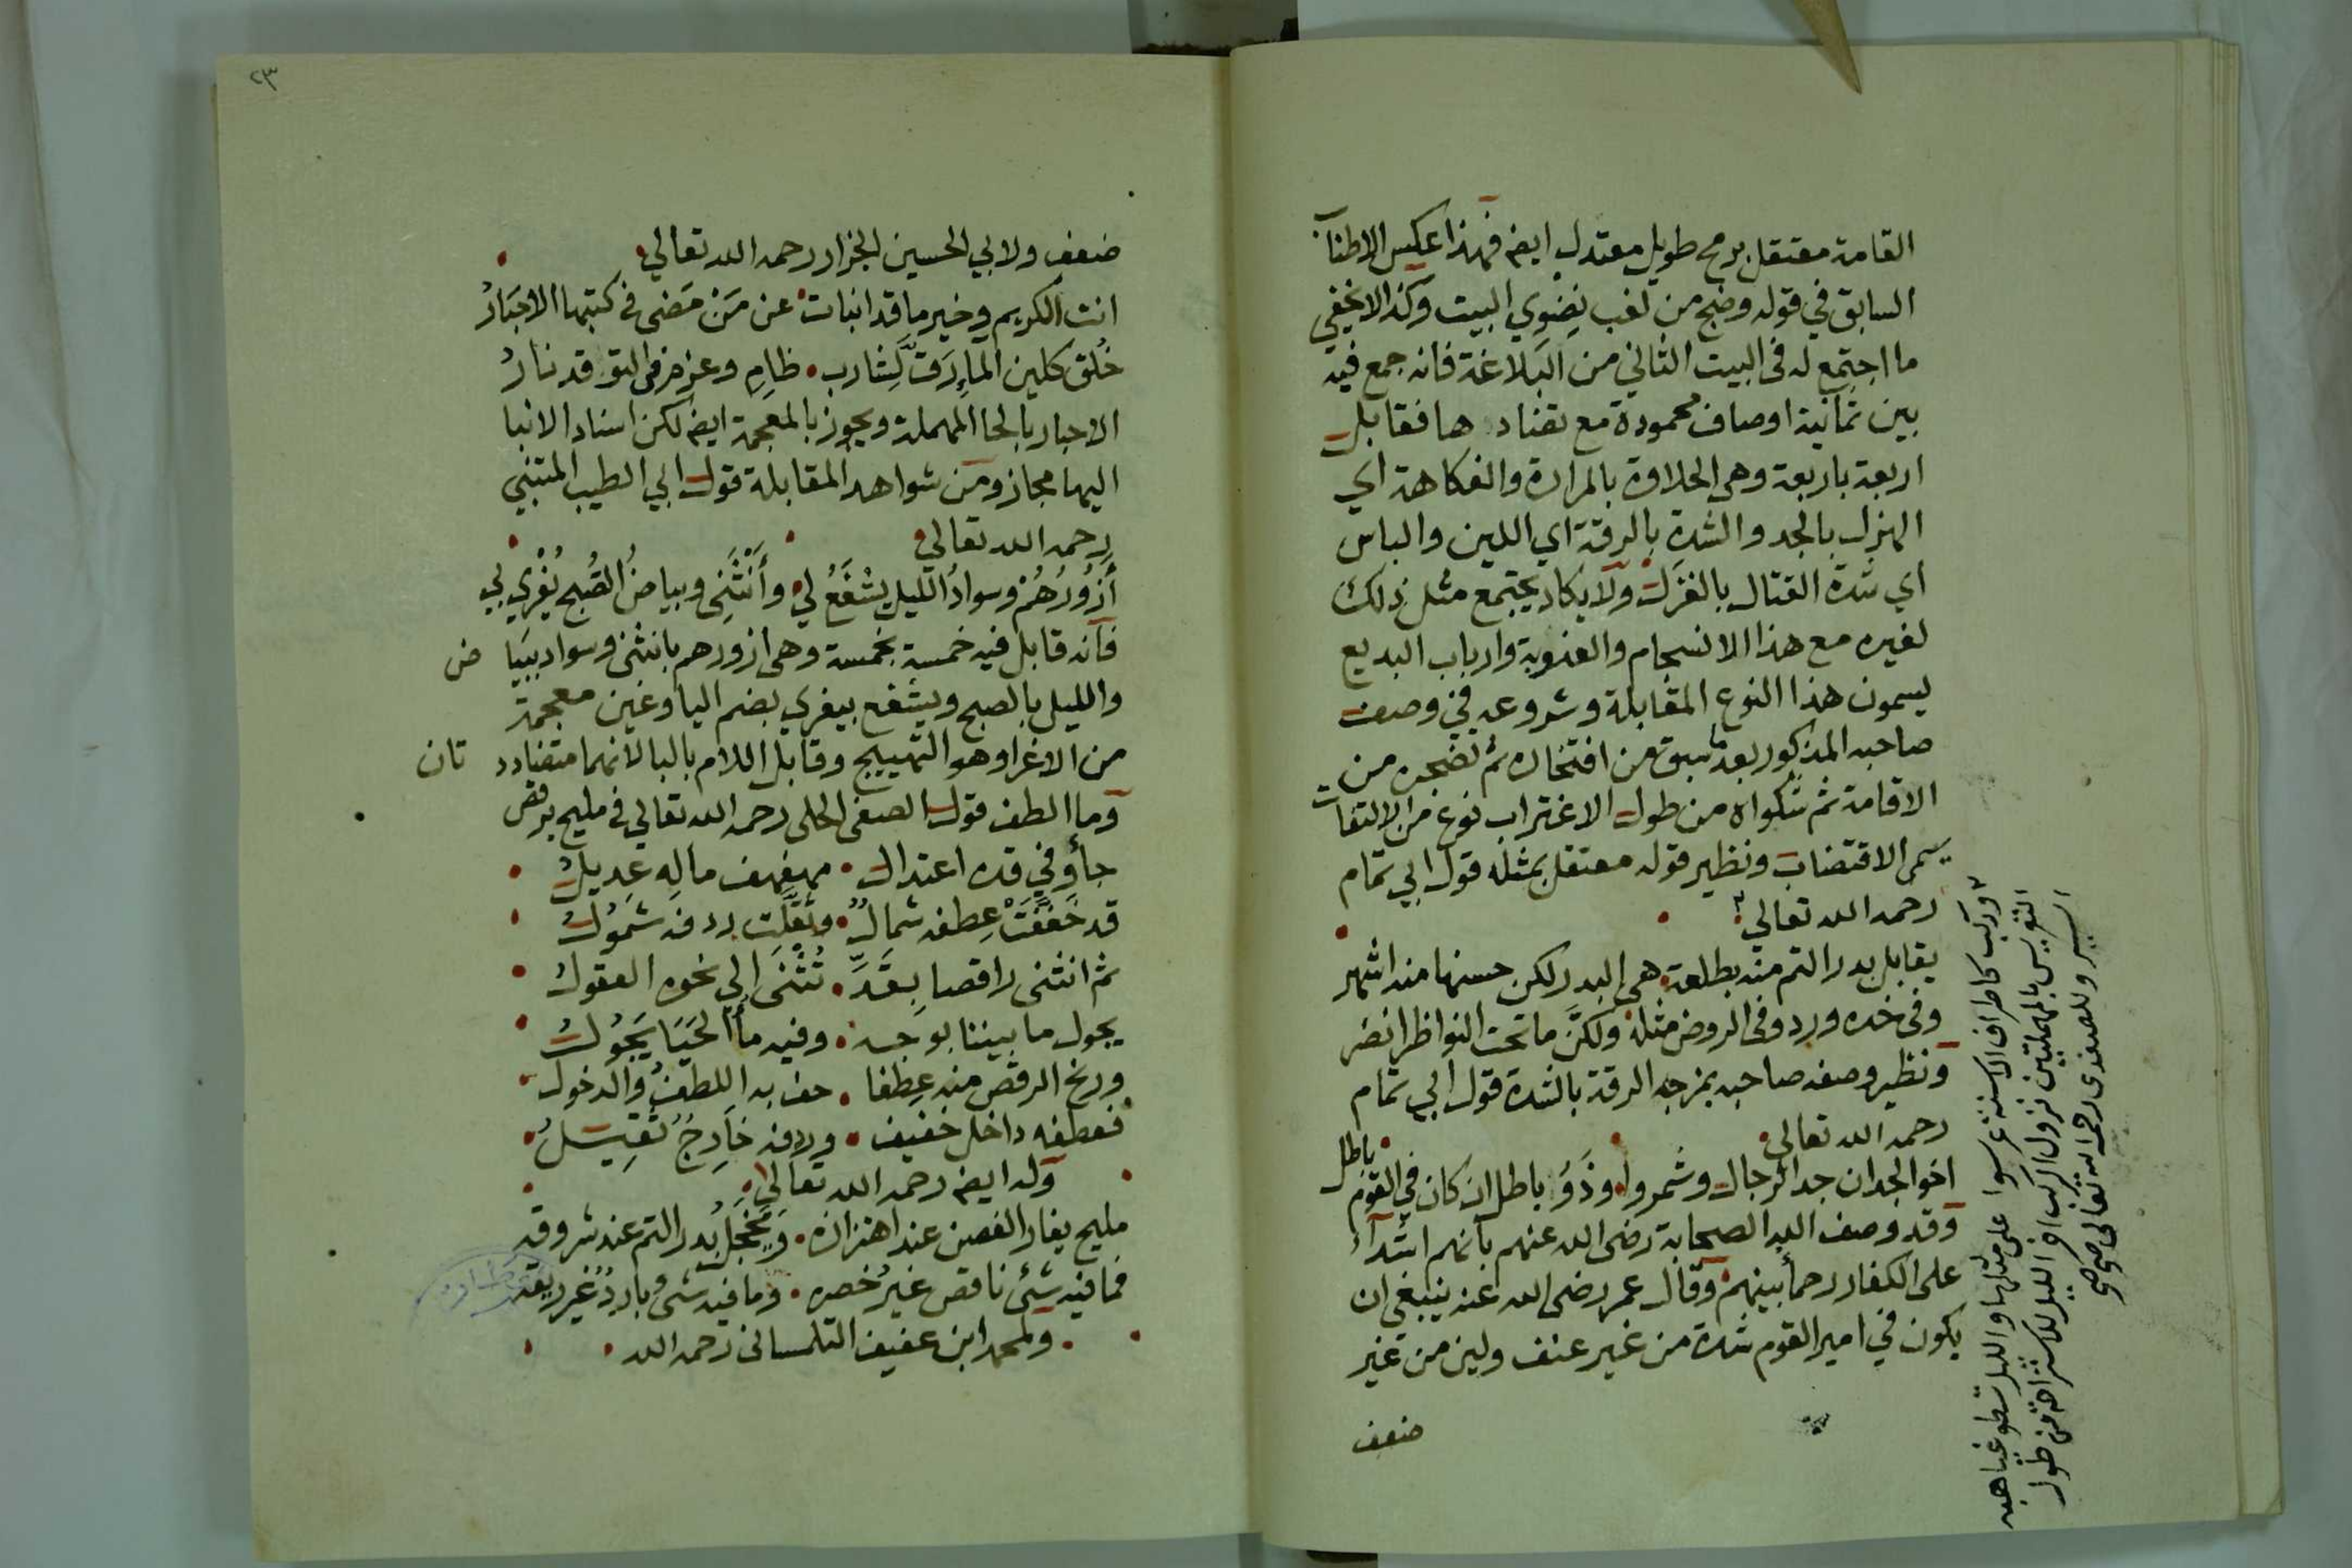 القامة معتقل برمح طويل معتدل ايضه فهذا عكس الاطنا
السابق في قوله وضج من لغب نضوي البيت وكذا لا يخفي
ما اجتمع له في البيت الثاني من البلاغة فانه جمع فيه
بين ثمانية اوصاف محمودة مع تضادها فقابل
اربعة باربعة وهي الحلاوة بالمرارة والفكاهة اي
الهزل بالجد والشدة بالرقة اي اللين والباس
اي شدة القتال بالغزل ولا يكاد يجتمع مثل ذلك
لغيره مع هذا الانسجام والعذوبة وارباب البديع
يسمون هذا النوع المقابلة وشروعه في وصف
صاحبه المذكور بعد ما سبق من افتخاره ثم تضجره من
الاقامة ثم شكواه من طول الاغتراب نوع من الالتفات
يسمى الاقتضاب ونظير قوله معتقل بمثله قول ابي تمام
رحمه الله تعالي
يقابل بدر التم منه بطلعة هي البدر لكن حسنها منه اشهر
وفي خده ورد وفي الروض مثله ولكن ما تحت النواظر انضر
ونظير وصفه صاحبه بمزجه الرقة بالشدة قول ابي تمام
رحمه الله تعالى
اخو الجد ان جد الرجال وشمروا وذو باطل ان كان في القوم باطل
وقد وصف الله الصحابة رضى الله عنهم بانهم اشداء
على الكفار رحما بينهم وقال عمر رضى الله عنه ينبغي ان
يكون في امير القوم شدة من غير عنف ولين من غير
ضعف
وركب كاطراف الاسنة عرسوا على مثلها والليل تسطو غياهبه
التعريس بالمهملتين نزول الركب اخر الليل للاستراحة من طول
السير وللصفدى رحمه الله تعالى
٢٣
ضعف ولابي الحسين الجزار رحمه الله تعالي
انت الكريم وخير ما قد انبات عن من مضى في كتبها الاحبار
خلق كلين الماء رق لشارب ظام وعزم في التوقد نار
الاحبار بالحا المهملة ويجوز بالمعجمة ايضه لكن اسناد الانبا
اليها مجاز ومن شواهد المقابلة قول ابي الطيب المتنبي
رحمه الله تعالي
أزورهم وسواد الليل يشفع لي وأنثنى وبياض الصبح يغري بي
فانه قابل فيه خمسة بخمسة وهي ازورهم بانثنى وسواد ببياض
والليل بالصبح ويشفع بيغري بضم اليا وغين معجمة
من الاغرا وهو التهييج وقابل اللام بالبا لانهما متضادتان
وما الطف قول الصفى الحلى رحمه الله تعالي في مليح يرقص
جأ وفي قده اعتدال مهفهف ماله عديل
قد خففت عطفه شمال وثقلت ردفه شمول
ثم انثنى راقصا بقد تثنى الي نحوه العقول
يجول ما بيننا بوجه وفيه مأ الحيا يجول
ورنح الرقص منه عطفا حف به اللطف والدخول
فعطفه داخل خفيف وردفه خارج ثقيل
وله ايضه رحمه الله تعالي
مليح يغار الغصن عند اهتزازه ويخجل بدر التم عند شروقه
فما فيه شئ ناقص غير خصره وما فيه شى بارد غير ريقه
ولمحمد ابن عفيف التلمسانى رحمه الله